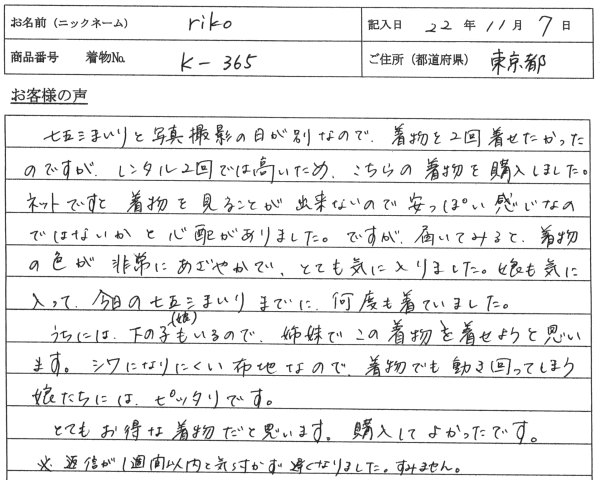 お名前（ニックネーム） riko 記入日 22 年 11 月 7 日
商品番号 着物No. K-365 ご住所（都道府県） 東京都
お客様の声
七五三まいりと写真撮影の日が別なので、着物を2回着せたかった
のですが、レンタル2回では高いため、こちらの着物を購入しました。
ネットですと着物を見ることが出来ないので安っぽい感じなの
ではないかと心配がありました。ですが、届いてみると、着物
の色が非常にあざやかで、とても気に入りました。娘も気に
入って、今日の七五三まいりまでに、何度も着ていました。
うちには、下の子(娘)もいるので、姉妹でこの着物を着せようと思い
ます。シワになりにくい布地なので、着物でも動き回ってしまう
娘たちには、ピッタリです。
とてもお得な着物だと思います。購入してよかったです。
※返信が1週間以内と気づかず遅くなりました。すみません。